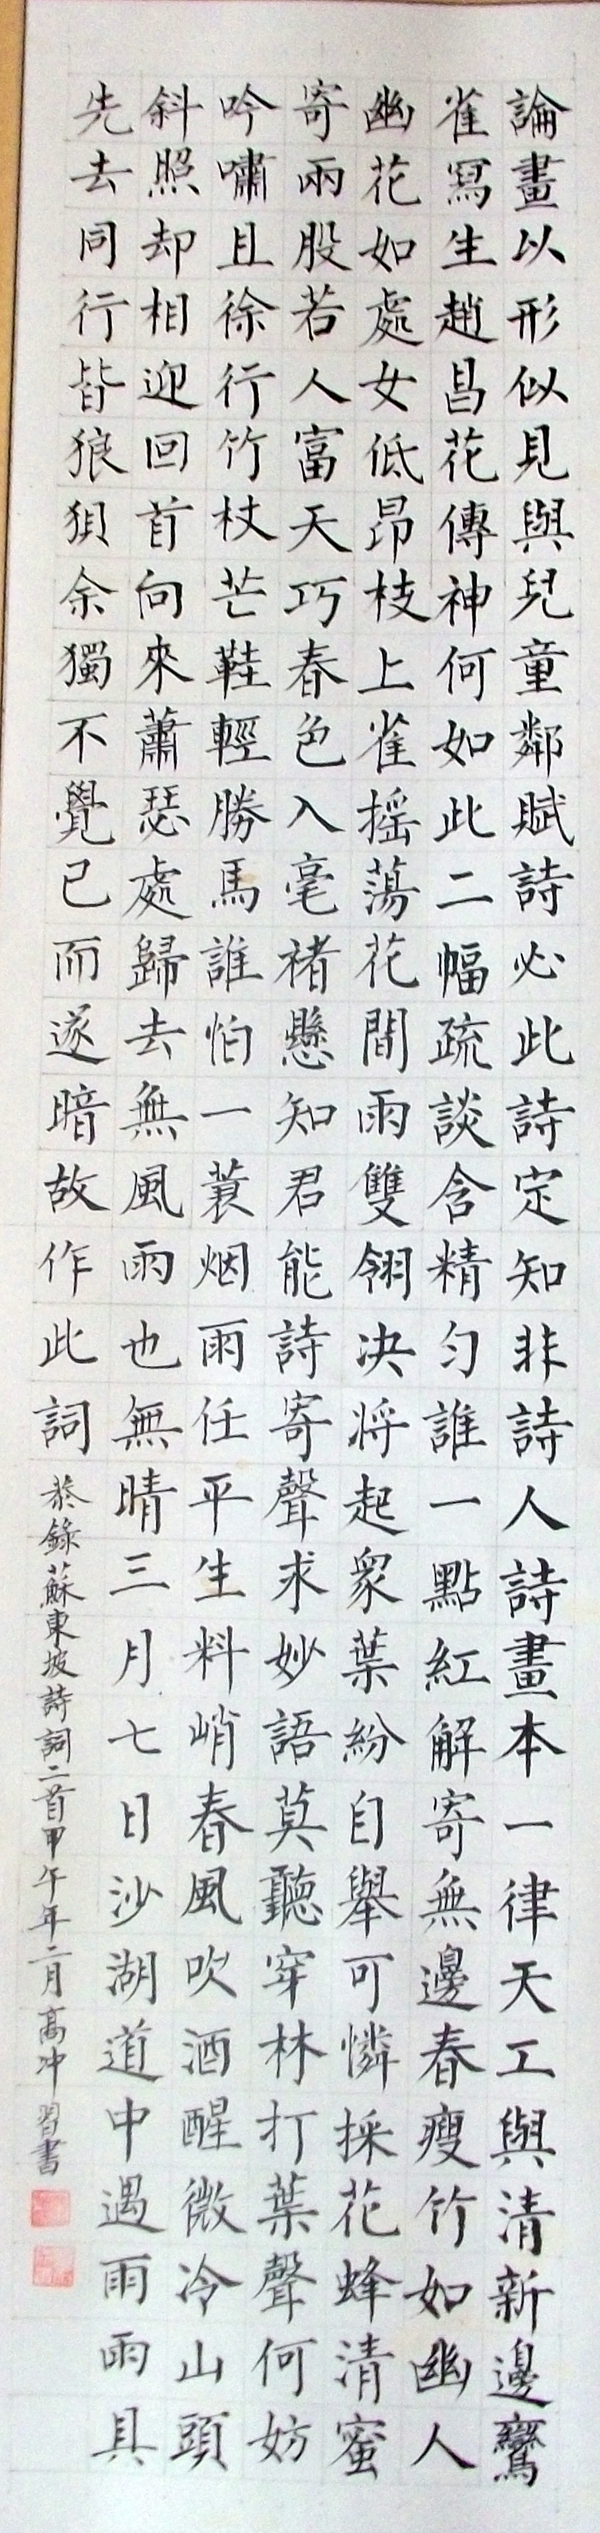 論畫以形似見與兒童鄰賦詩必此詩定知非詩人詩畫本一律天工與清新邊鸞
雀寫生趙昌花傳神何如此二幅疏談含精勻誰一點紅解寄無邊春瘦竹如幽人
幽花如處女低昂枝上雀搖蕩花間雨雙翎決將起衆葉紛自舉可憐採花蜂清蜜
寄兩股若人富天巧春色入毫褚懸知君能詩寄聲求妙語莫聽穿林打葉聲何妨
吟嘯且徐行竹杖芒鞋輕勝馬誰怕一蓑烟雨任平生料峭春風吹酒醒微冷山頭
斜照却相迎回首向來蕭瑟處歸去無風雨也無晴三月七日沙湖道中遇雨雨具
先去同行皆狼狽余獨不覺已而遂暗故作此詞 恭錄蘇東坡詩詞二首甲午年二月高冲習書